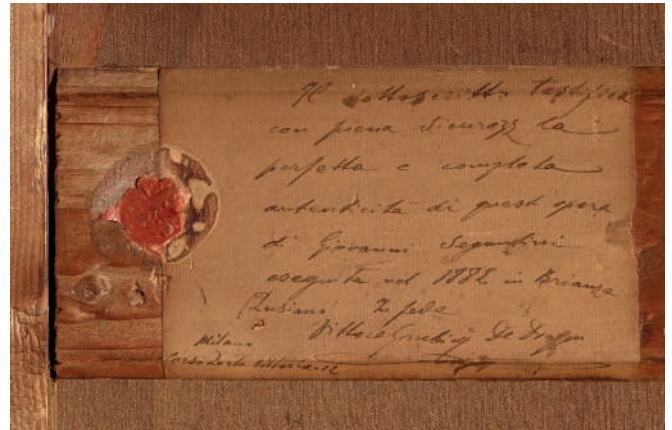 Il sottoscritto testifica
con piena sicurezza la
perfetta e completa
autenticità di quest'opera
di Giovanni Segantini
eseguita nel 1882 in Brianza
(Pusiano) In fede
Vittore Grubicy De Dragon
Milano
Corso Porta Vittoria 12